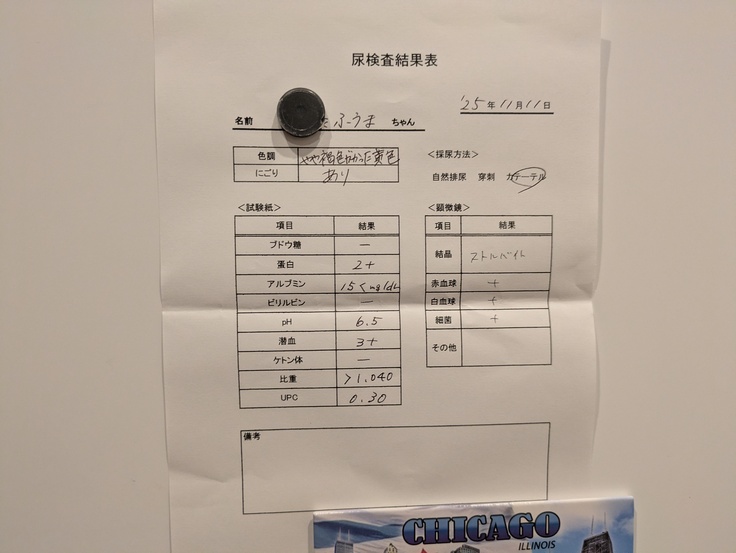 尿検査結果表
'25年11月11日
名前 ふうま ちゃん
色調 やや褐色がかった黄色
にごり あり
＜採尿方法＞
自然排尿 穿刺 カテーテル
＜試験紙＞
項目 結果
ブドウ糖 －
蛋白 2+
アルブミン 15<mg/dL
ビリルビン －
pH 6.5
潜血 3+
ケトン体 －
比重 >1.040
UPC 0.30
＜顕微鏡＞
項目 結果
結晶 ストルバイト
赤血球 +
白血球 +
細菌 +
その他
備考
CHICAGO
ILLINOIS